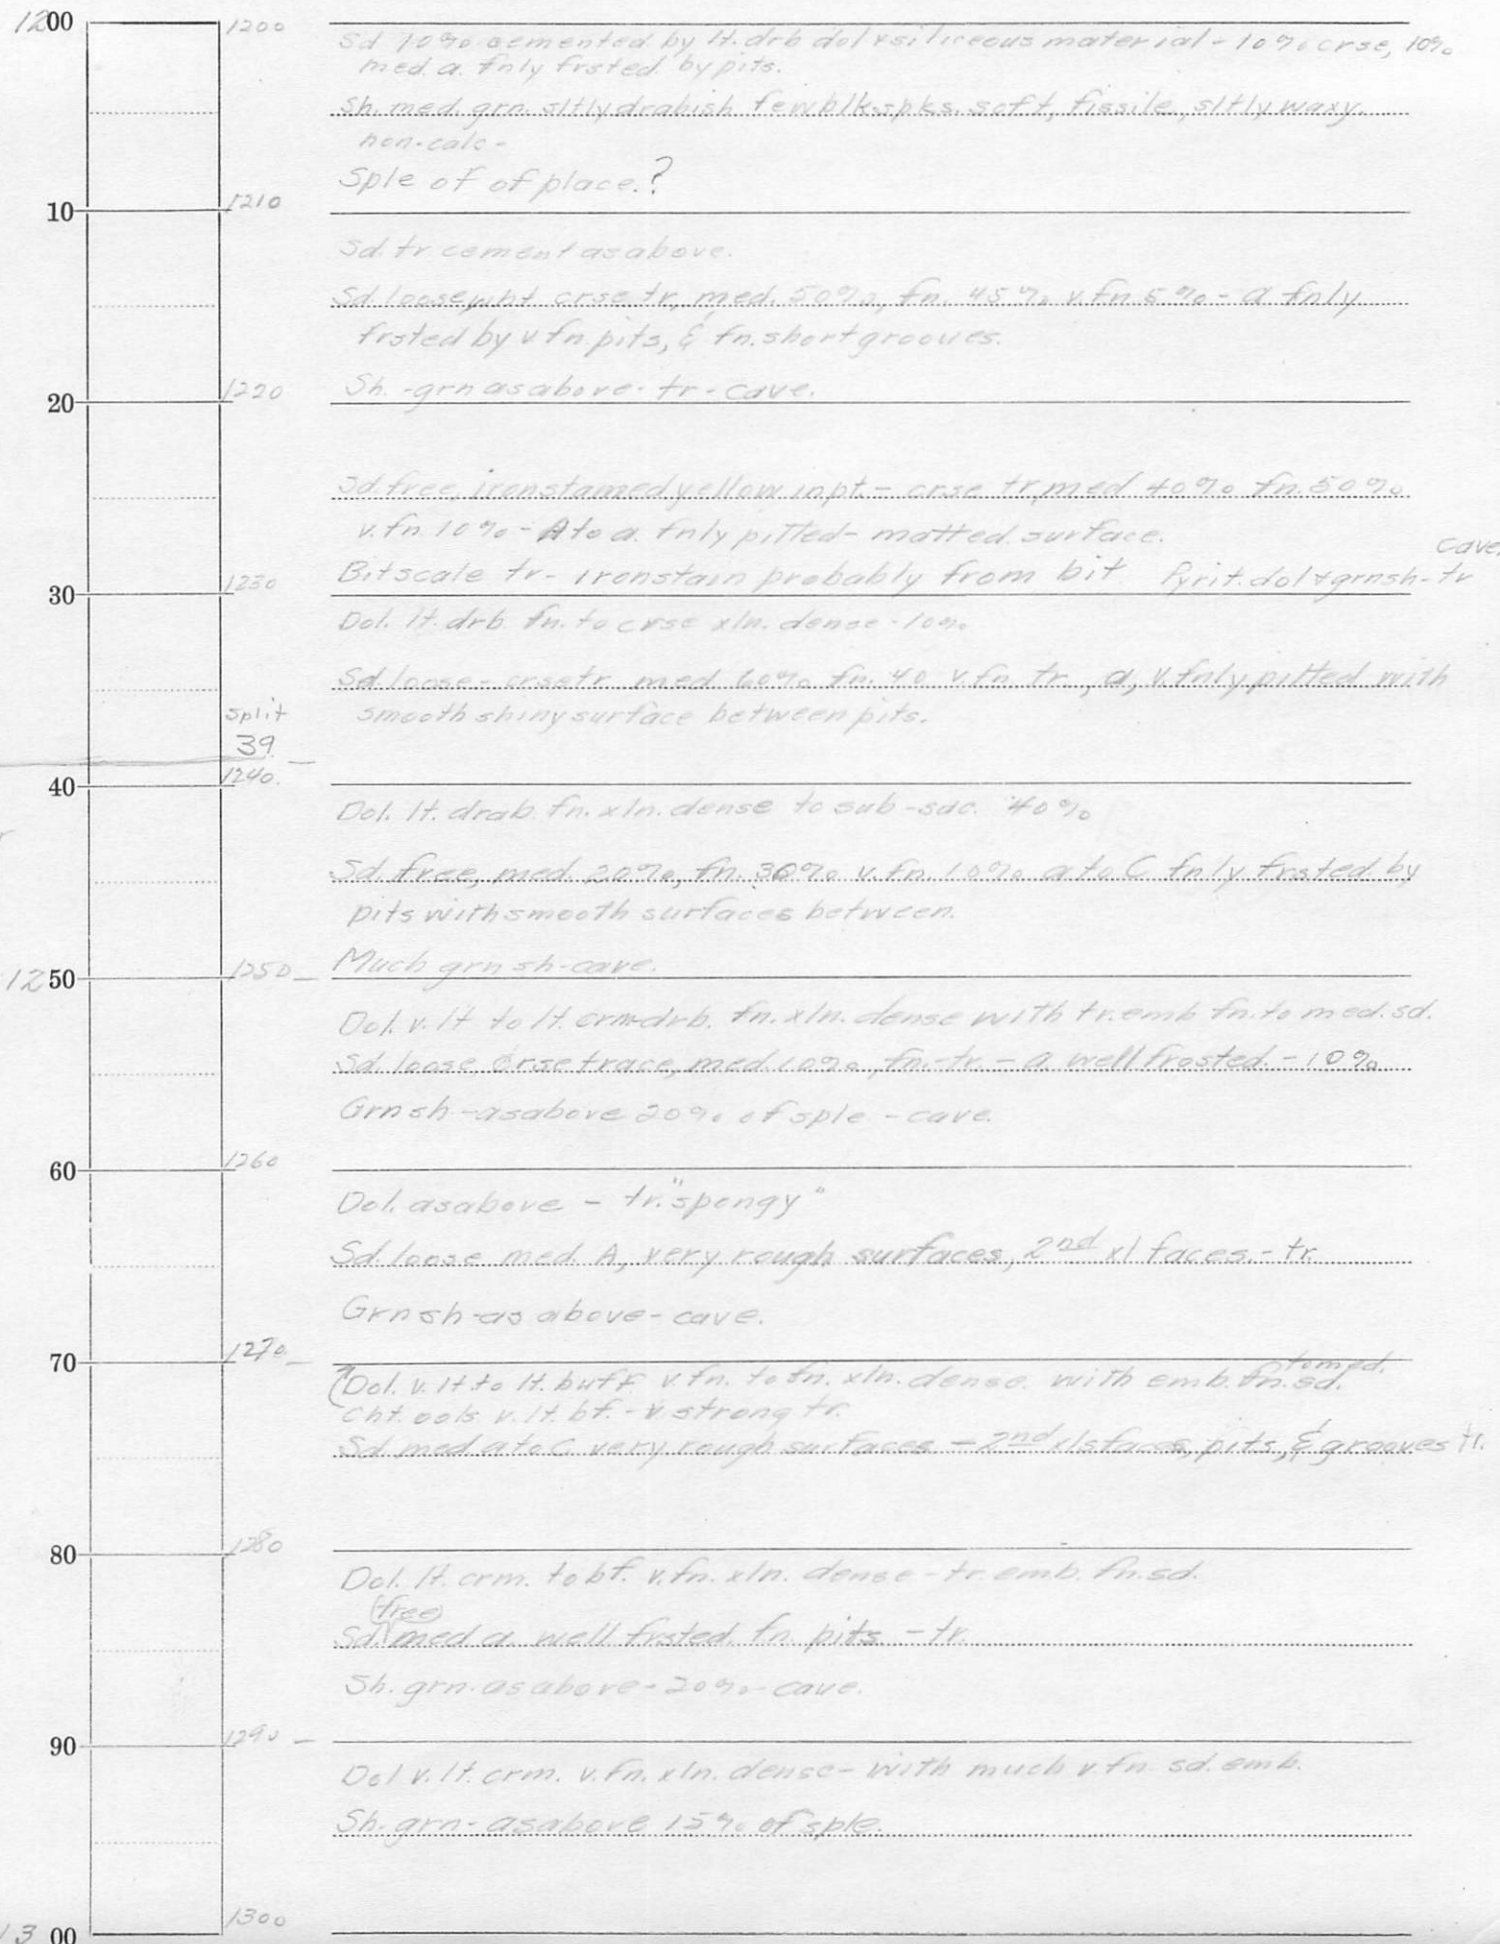 1200 1200
Sd 10% cemented by lt. drb dol & siliceous material - 10% crse, 10%
med. a. fnly frsted. by pits.
Sh. med. grn. sltly drabish few blk. spks. soft, fissile, sltly waxy.
non-calc -
Sple of of place.?
10 1210
Sd. tr cement as above.
Sd. loose, wht crse tr, med. 50%, fn. 45% v. fn. 5% - a fnly
frsted by v. fn. pits, & fn. short grooves.
Sh. - grn as above - tr - cave.
20 1220
Sd. free, iron stained yellow in pt. - crse tr, med 40% fn. 50%
v. fn. 10% - A to a. fnly pitted - matted. surface.
cave.
Bit scale tr - iron stain probably from bit Pyrit. dol & grn sh - tr
30 1230
Dol. lt. drb fn. to crse xln. dense - 10%
Sd. loose - crse tr. med 60% fn. 40 v. fn. tr, a, v. fnly pitted with
smooth shiny surface between pits.
split
39
40 1240.
Dol. lt. drab. fn. xln. dense to sub-sac. 40%
Sd. free, med. 20%, fn. 30% v. fn. 10% a to C fnly frsted by
pits with smooth surfaces between.
Much grn sh - cave.
1250 1250
Dol. v. lt to lt. crm-drb. fn. xln. dense with tr. emb fn. to med. sd.
Sd. loose crse trace, med. 10%, fn. - tr. - a. well frosted. - 10%
Grn sh - as above 20% of sple - cave.
60 1260
Dol. as above - tr. "spongy"
Sd. loose med. A, very rough surfaces, 2nd xl faces. - tr.
Grn sh - as above - cave.
70 1270
to med.
Dol. v. lt to lt. buff v. fn. to fn. xln. dense. with emb. fn. sd.
Cht. ools v. lt. bf. - v. strong tr.
Sd med a to C very rough surfaces - 2nd xls faces, pits, & grooves tr.
80 1280
Dol. lt. crm. to bf. v. fn. xln. dense - tr. emb. fn. sd.
(free)
Sd. med a. well frsted fn. pits - tr.
Sh. grn. as above - 20% cave.
90 1290
Dol v. lt. crm. v. fn. xln. dense - with much v. fn sd. emb.
Sh. grn - as above 15% of sple.
1300 1300